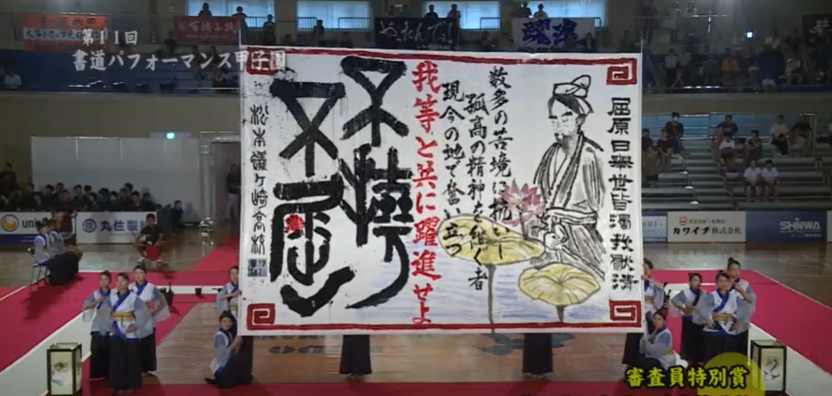 第11回
書道パフォーマンス甲子園
屈原曰擧世皆濁我獨清
数多の苦境に抗いし
孤高の精神を継ぐ者
現今の地で奮い立つ
我等と共に躍進せよ
不撓
不屈
松本蟻ヶ崎高校
丸住製
カワイチ株式会社
SHINWA
審査員特別賞